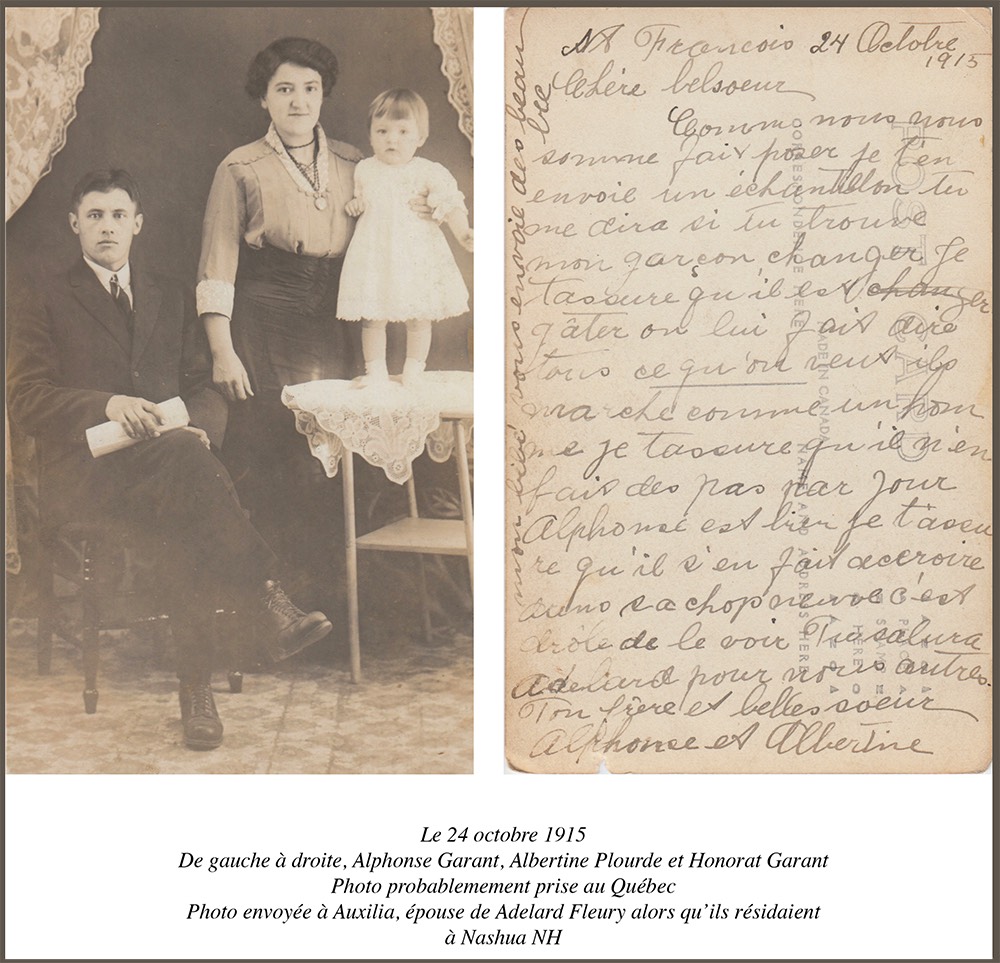 St François 24 Octobre
1915
Chére belsoeur
Comme nous nous
somme fait poser je t'en
envoie un échantillon tu
me dira si tu trouve
mon garçon changer Je
tassure qu'il est changer
gâter on lui fait dire
tous ce qu'on veut ils
marche comme un hom
me je tassure qu'il n'en
fait des pas par jour
Alphonse est fier je t'assu
re qu'il s'en fait accroire
c'est
drôle de le voir Tu salura
Adelard pour nous autres.
Ton frère et belles soeur
Alphonse et Albertine
mon bébé vous envoie des beau
bec
POST CARD
CORRESPONDENCE HERE
MADE IN CANADA
NAME AND ADDRESS HERE
Le 24 octobre 1915
De gauche à droite, Alphonse Garant, Albertine Plourde et Honorat Garant
Photo probablemement prise au Québec
Photo envoyée à Auxilia, épouse de Adelard Fleury alors qu'ils résidaient
à Nashua NH